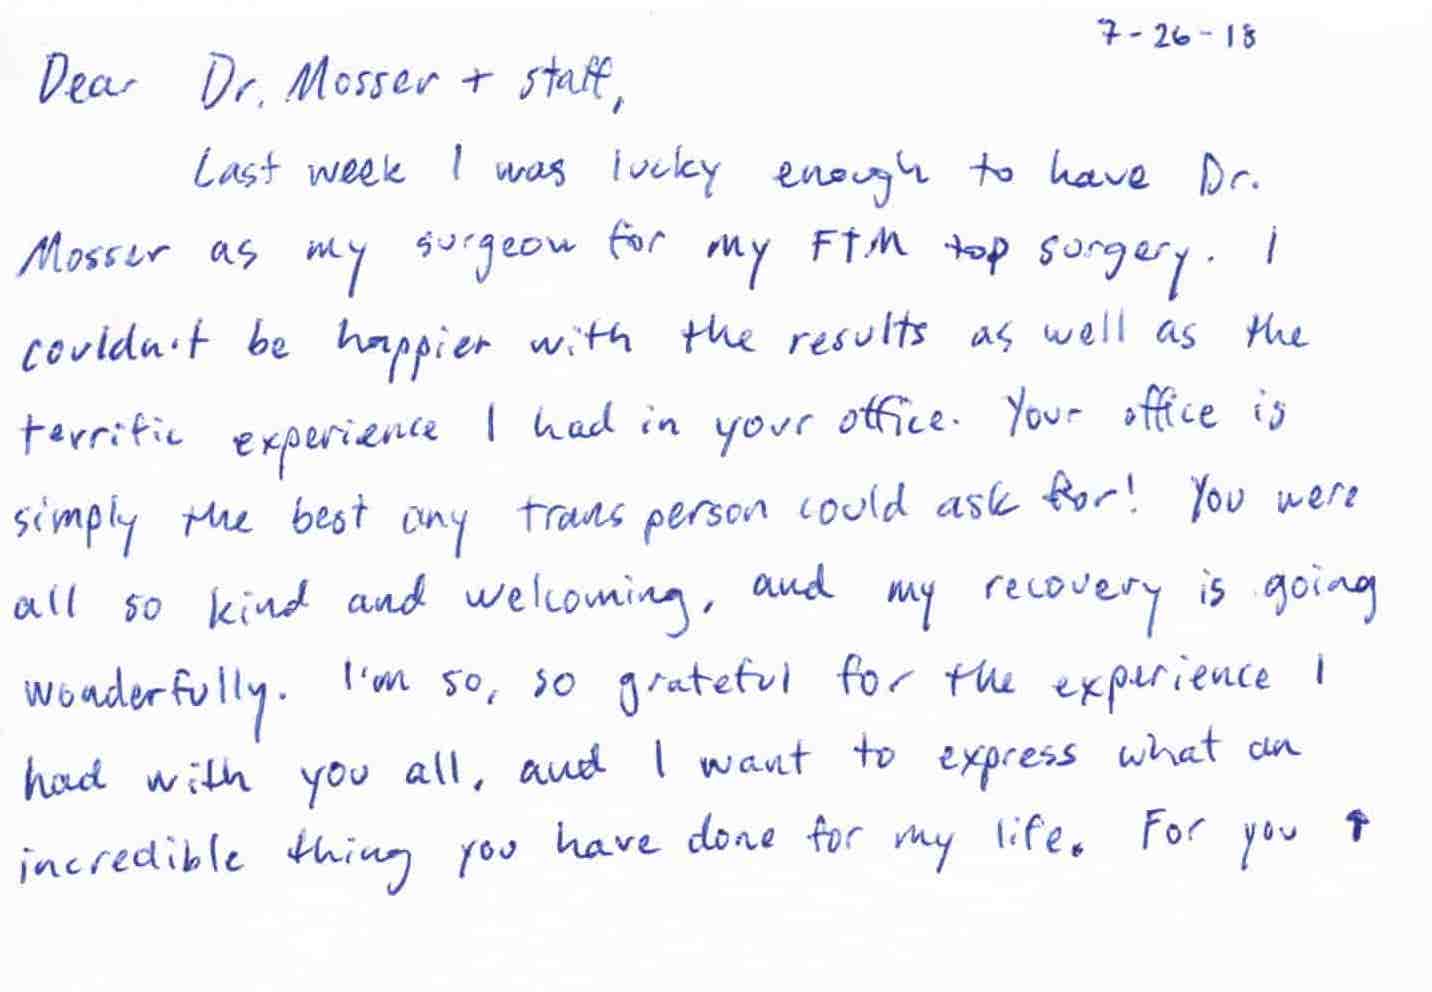 7-26-18
Dear Dr. Mosser + staff,
Last week I was lucky enough to have Dr.
Mosser as my surgeon for my FTM top surgery. I
couldn't be happier with the results as well as the
terrific experience I had in your office. Your office is
simply the best any trans person could ask for! You were
all so kind and welcoming, and my recovery is going
wonderfully. I'm so, so grateful for the experience I
had with you all, and I want to express what an
incredible thing you have done for my life. For you ↑